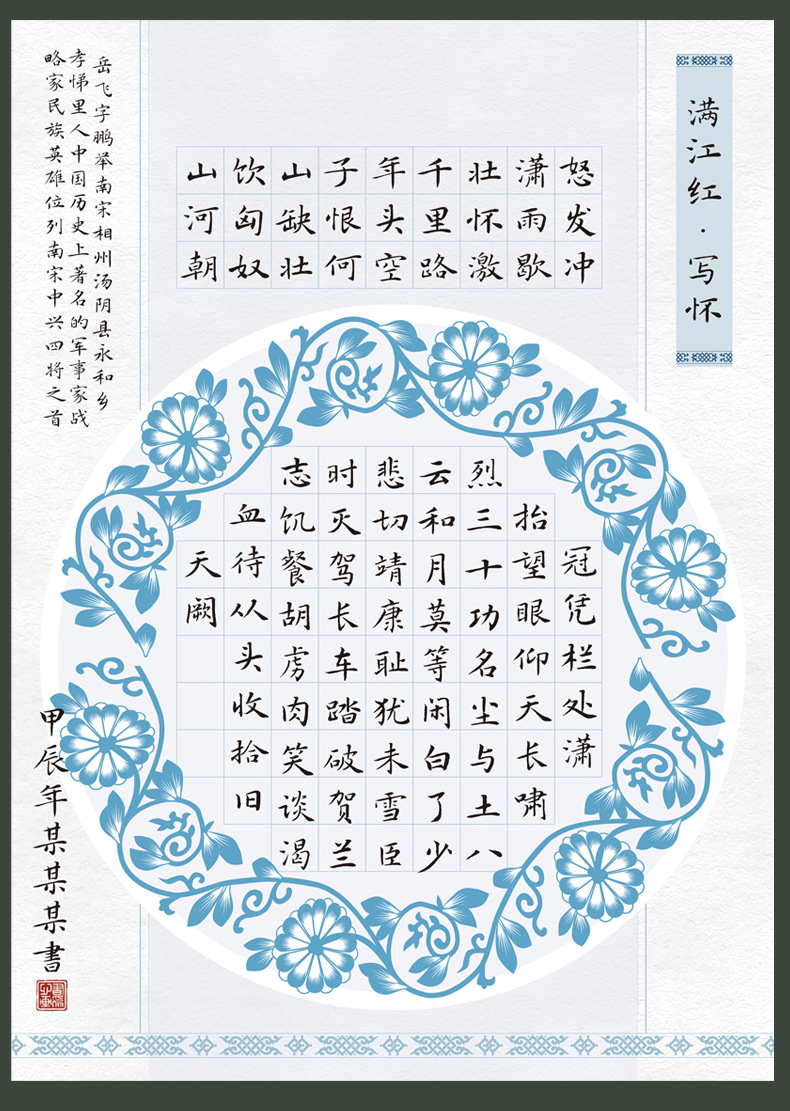 满江红·写怀
怒发冲冠凭栏处潇
潇雨歇抬望眼仰天长啸
壮怀激烈三十功名尘与土八
千里路云和月莫等闲白了少
年头空悲切靖康耻犹未雪臣
子恨何时灭驾长车踏破贺兰
山缺壮志饥餐胡虏肉笑谈渴
饮匈奴血待从头收拾旧
山河朝天阙
岳飞字鹏举南宋相州汤阴县永和乡
孝悌里人中国历史上著名的军事家战
略家民族英雄位列南宋中兴四将之首
甲辰年某某某書